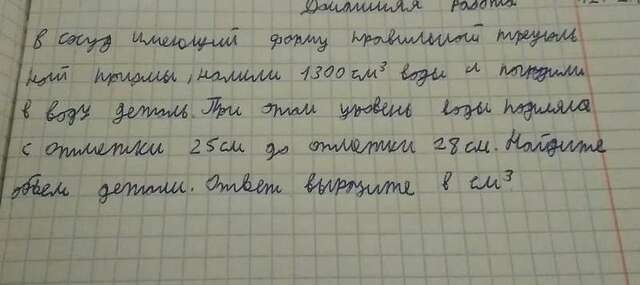 Домашняя работа
В сосуд имеющий форму правильной треуголь
ной призмы, налили 1300 см³ воды и погрузили
в воду деталь. При этом уровень воды поднялся
с отметки 25 см до отметки 28 см. Найдите
объем детали. Ответ выразите в см³